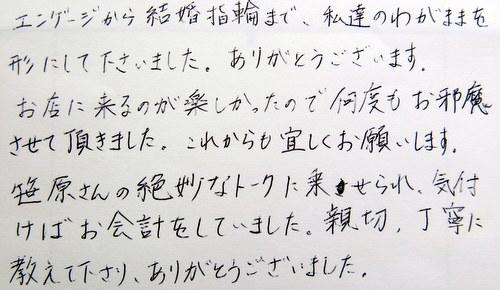 エンゲージから結婚指輪まで、私達のわがままを
形にして下さいました。ありがとうございます。
お店に来るのが楽しかったので何度もお邪魔
させて頂きました。これからも宜しくお願いします。
笹原さんの絶妙なトークに乗せられ、気付
けばお会計をしていました。親切、丁寧に
教えて下さり、ありがとうございました。